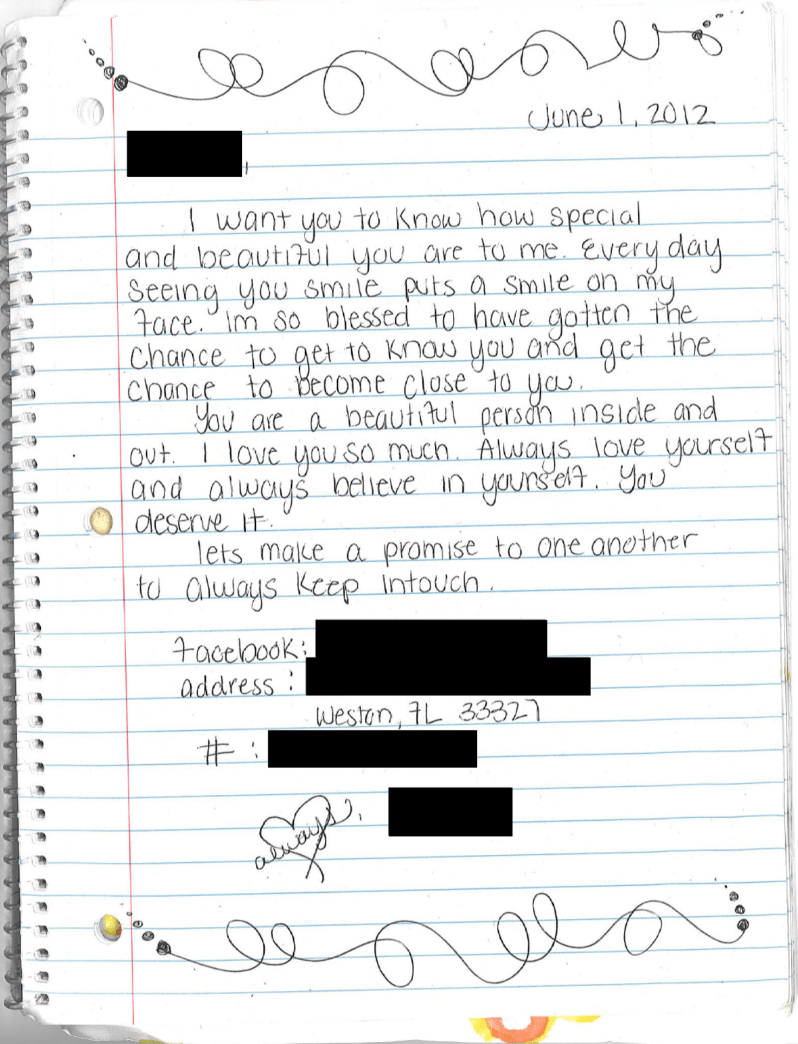 June 1, 2012
,
I want you to know how special
and beautiful you are to me. Every day
seeing you smile puts a smile on my
face. Im so blessed to have gotten the
chance to get to know you and get the
chance to become close to you.
You are a beautiful person inside and
out. I love you so much. Always love yourself
and always believe in yourself. You
deserve it.
lets make a promise to one another
to always keep intouch.
facebook:
address:
Weston, FL 33327
#:
always,